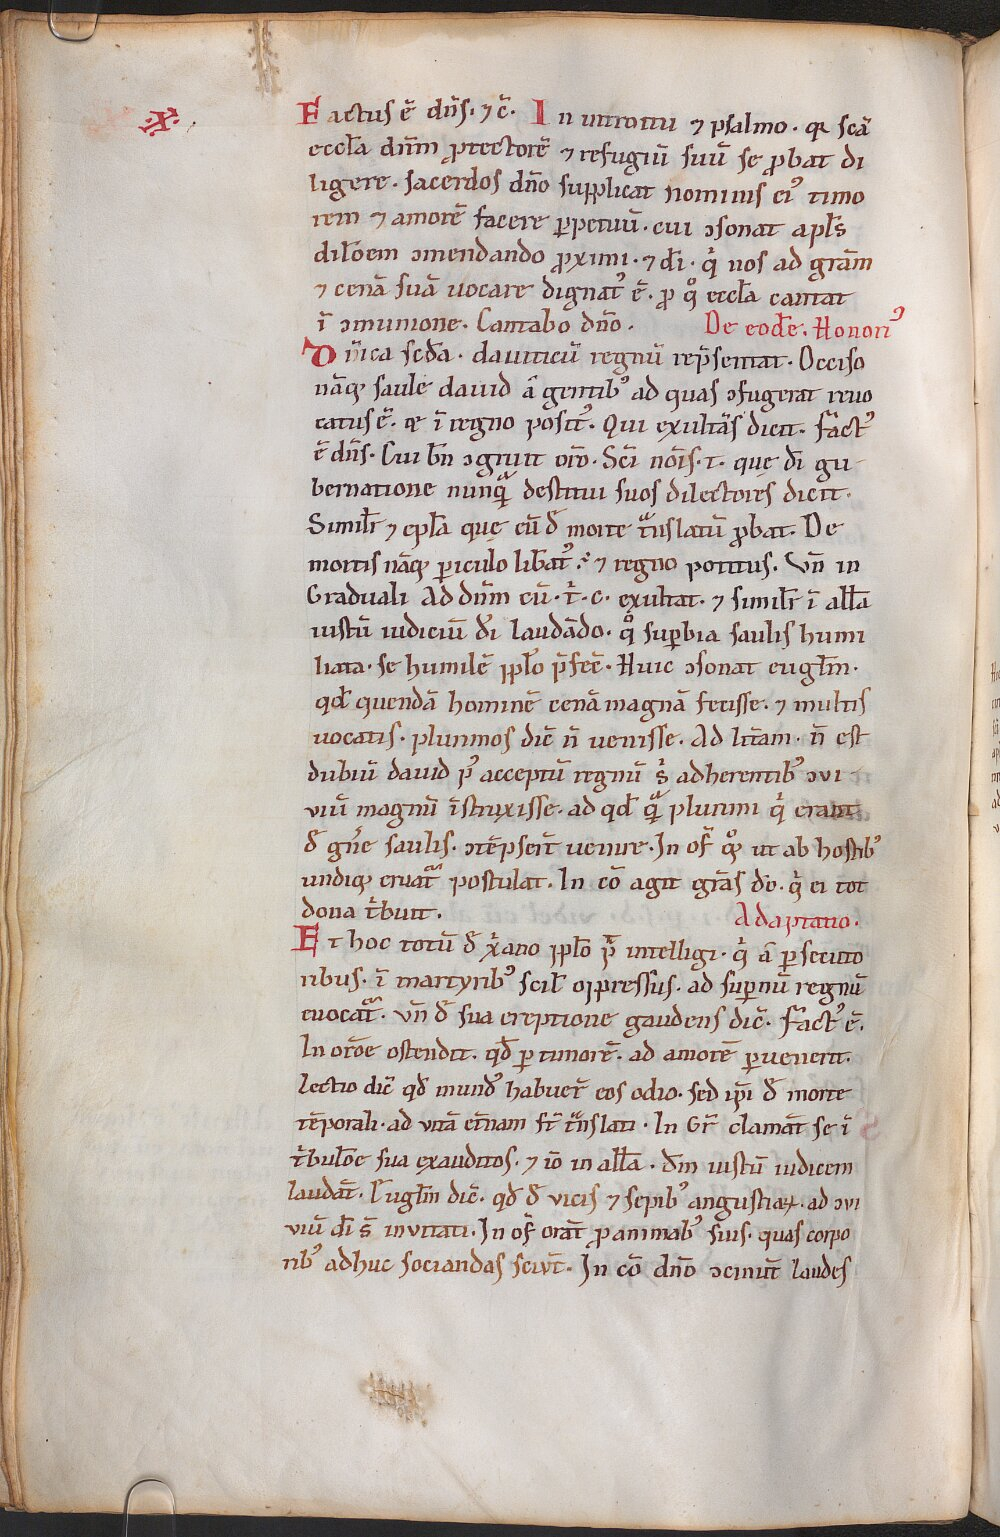 ·X·
Factus ē dn̄s. ⁊ c̄. In introitu ⁊ psalmo. qr̄ scā
eccl̄a dn̄m ꝓtectorē ⁊ refugiū suū se ꝓbat di
ligere. sacerdos dn̄o supplicat nominis eiꝰ timo
rem ⁊ amorē facere ꝑpetuū. cui ↄsonat apl̄s
dil̄oem ↄmendando ꝓximi. ⁊ dī. q̇ nos ad grām
⁊ cenā suā uocare dignatꝰ ē. ꝓ qͦ eccl̄a cantat
ī ↄmunione. Cantabo dn̄o. De eodē. Honoriꝰ
Dn̄ica scd̄a. dauiticū regnū rep̄sentat. Occiso
nāq; saule dauid ā gentibꝰ ad quas ↄfugerat reuo
catus ē. ⁊ ī regno positꝰ. Qui exultās dicit. Factꝰ
ē dn̄s. Cui bn̄ ↄgruit orō. Sc̄i nōis. t. quę dī gu
bernatione nunqᷓ destitui suos dilectores dicit.
Simil̄r ⁊ epl̄a quę eū đ morte tᷓnslatū ꝓbat. De
mortis nāq; ꝑiculo liƀatꝰ. ⁊ regno potitus. Vn̄ in
Graduali Ad dn̄m cū. t̄. c. exultat. ⁊ simil̄r ī all̄a
iustū iudiciū dī laudādo. qͦ suꝑbia saulis humi
liata. se humilē ppl̄o p̄fēc. Huic ↄsonat eugl̄m.
qđ quendā hominē cenā magnā fecisse. ⁊ multis
uocatis. plurimos dic̄ n̄ uenisse. Ad litām. n̄ est
dubiū dauid pꝰ acceptū regnū s̄ adherentibꝰ ↄui
uiū magnū īstruxisse. ad qđ qᷓ plurimi q̇ erant
đ gn̄e saulis. ↄtēpserīt uenire. In of̄ qͦq; ut ab hostibꝰ
undiq; eruatᷓ postulat. In cō agit grās dō. q̇ ei tot
dona t̄buit. Adaptatio.
Et hoc totū đ xr̄ano ppl̄o pᷓ intelligi. q̇ ā ꝑsecuto
ribus. ī martyribꝰ scil̄ oppressus. ad suꝑnū regnū
euocatᷓ. Vn̄ đ sua ereptione gaudens dic̄. Factꝰ ē.
In orōe ostendit. qđ ꝑ timorē. ad amorē ꝑuenerit.
Lectio dic̄ qđ mundꝰ habuerī eos odio. sed ip̄i đ morte
tēporali. ad uitā et̄nam st̄ tᷓnslati. In Gr̄ clamāt se ī
t̄bul̄oe sua exauditos. ⁊ iō in all̄a. dm̄ iustū iudicem
laudāt. Eugl̄m dic̄. qđ đ vicis ⁊ sepibꝰ angustiaꝝ. ad ↄui
uiū dī s̄ inuitati. In of̄ orāt ꝓ animabꝰ suis. quas corpo
ribꝰ adhuc sociandas sciūt. In cō dn̄o ↄcinūt laudes